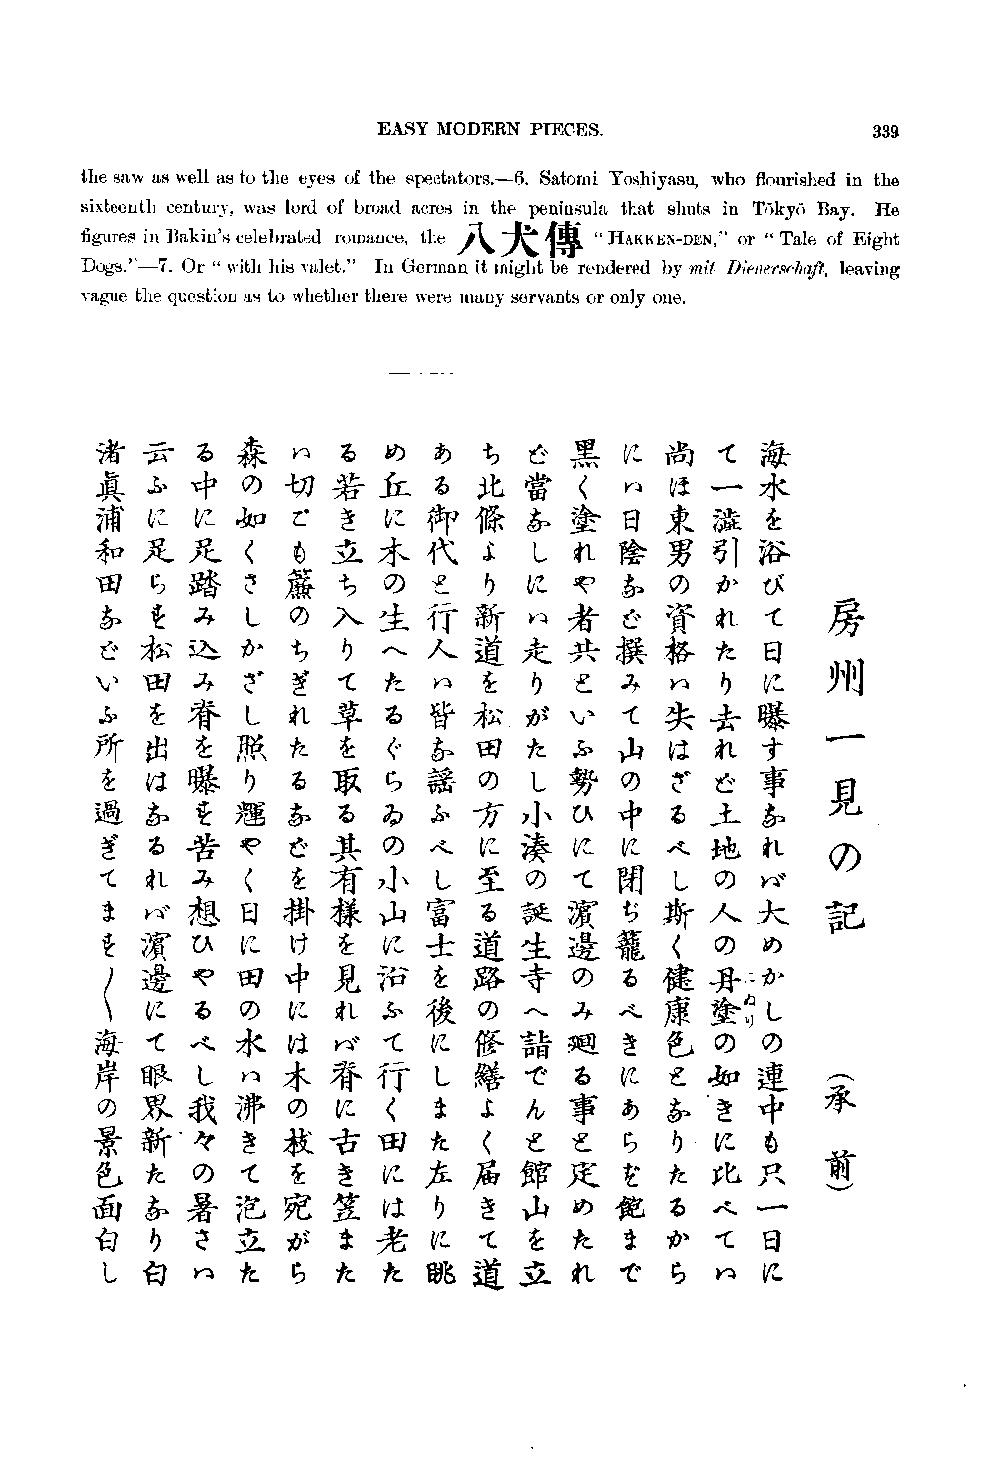 EASY MODERN PIECES. 339
the saw as well as to the eyes of the spectators.—6. Satomi Yoshiyasu, who flourished in the
sixteenth century, was lord of broad acres in the peninsula that shuts in Tōkyō Bay. He
figures in Bakin's celebrated romance, the 八犬傳 “HAKKEN-DEN,” or “Tale of Eight
Dogs.”—7. Or “with his valet.” In German it might be rendered by mit Dienerschaft, leaving
vague the question as to whether there were many servants or only one.
房州一見の記 (承前)
海水を浴びて日に曝す事なれバ大めかしの連中も只一日に
て一澁引かれたり去れど土地の人の丹塗の如きに比べてハ
にぬり
尚ほ東男の資格ハ失はざるべし斯く健康色となりたるから
にハ日陰など撰みて山の中に閉ぢ籠るべきにあらず飽まで
黒く塗れや者共といふ勢ひにて濱邊のみ廻る事と定めたれ
ど當なしにハ走りがたし小湊の誕生寺へ詣でんと館山を立
ち北條より新道を松田の方に至る道路の修繕よく届きて道
ある御代と行人ハ皆な謡ふべし富士を後にしまた左りに眺
め丘に木の生へたるぐらゐの小山に沿ふて行く田には老た
る若き立ち入りて草を取る其有様を見れバ脊に古き笠また
ハ切ごも簾のちぎれたるなどを掛け中には木の枝を宛がら
森の如くさしかざし照り輝やく日に田の水ハ沸きて泡立た
る中に足踏み込み脊を曝す苦み想ひやるべし我々の暑さハ
云ふに足らず松田を出はなるれバ濱邊にて眼界新たなり白
渚眞浦和田などいふ所を過ぎてます〱海岸の景色面白し